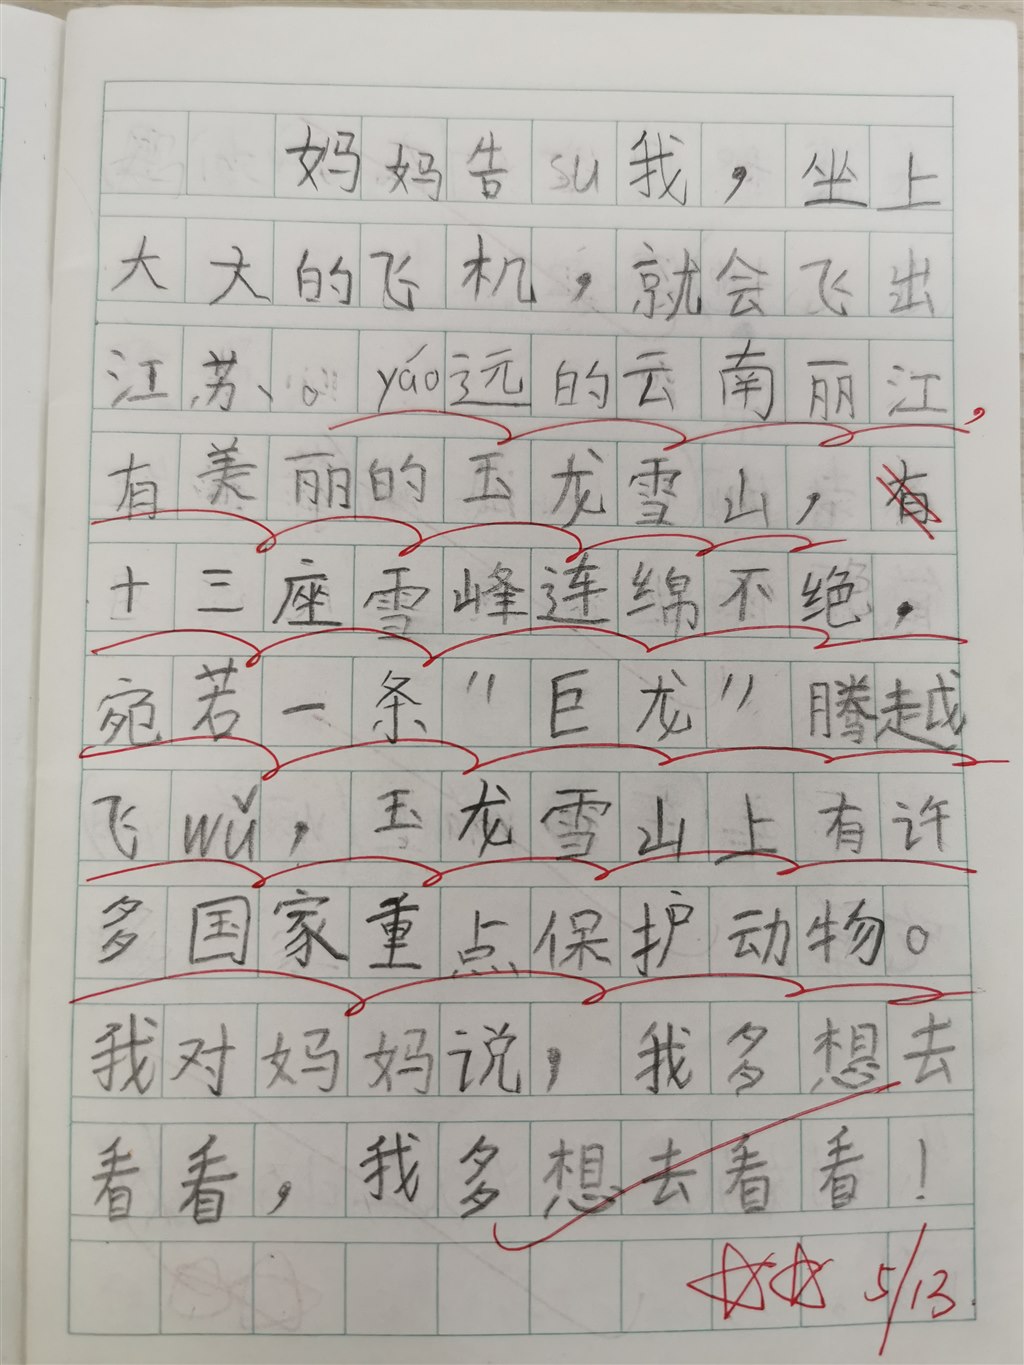 妈妈告su我，坐上
大大的飞机，就会飞出
江苏、。yáo远的云南丽江，
有美丽的玉龙雪山，有
十三座雪峰连绵不绝，
宛若一条"巨龙"腾越
飞wǔ，玉龙雪山上有许
多国家重点保护动物。
我对妈妈说，我多想去
看看，我多想去看看！
5/13.